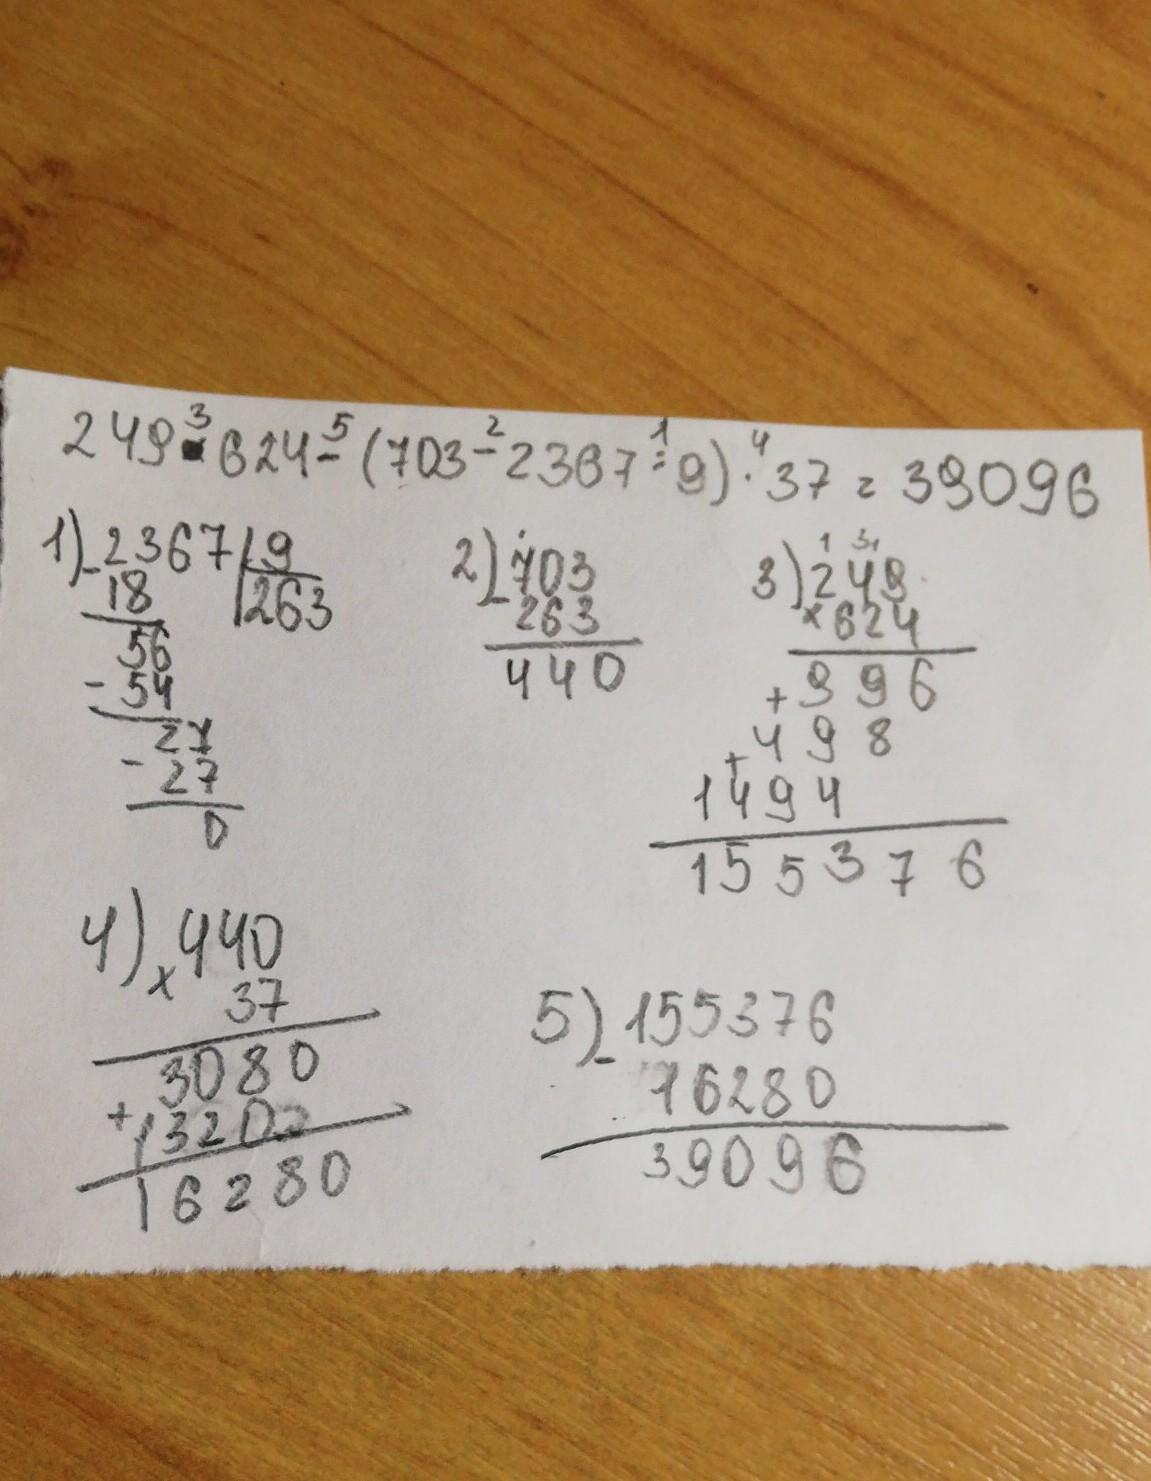 249 · 624 - (703 - 2367 : 9) · 37 = 39096
3 5 2 1 4
1) - 2367 | 9
18 | 263
56
- 54
27
- 27
0
2) - 703
263
440
3) 249
1 3 1
× 624
+ 996
+ 498
1494
155376
4) × 440
37
3080
+ 1320
16280
5) - 155376
16280
39096